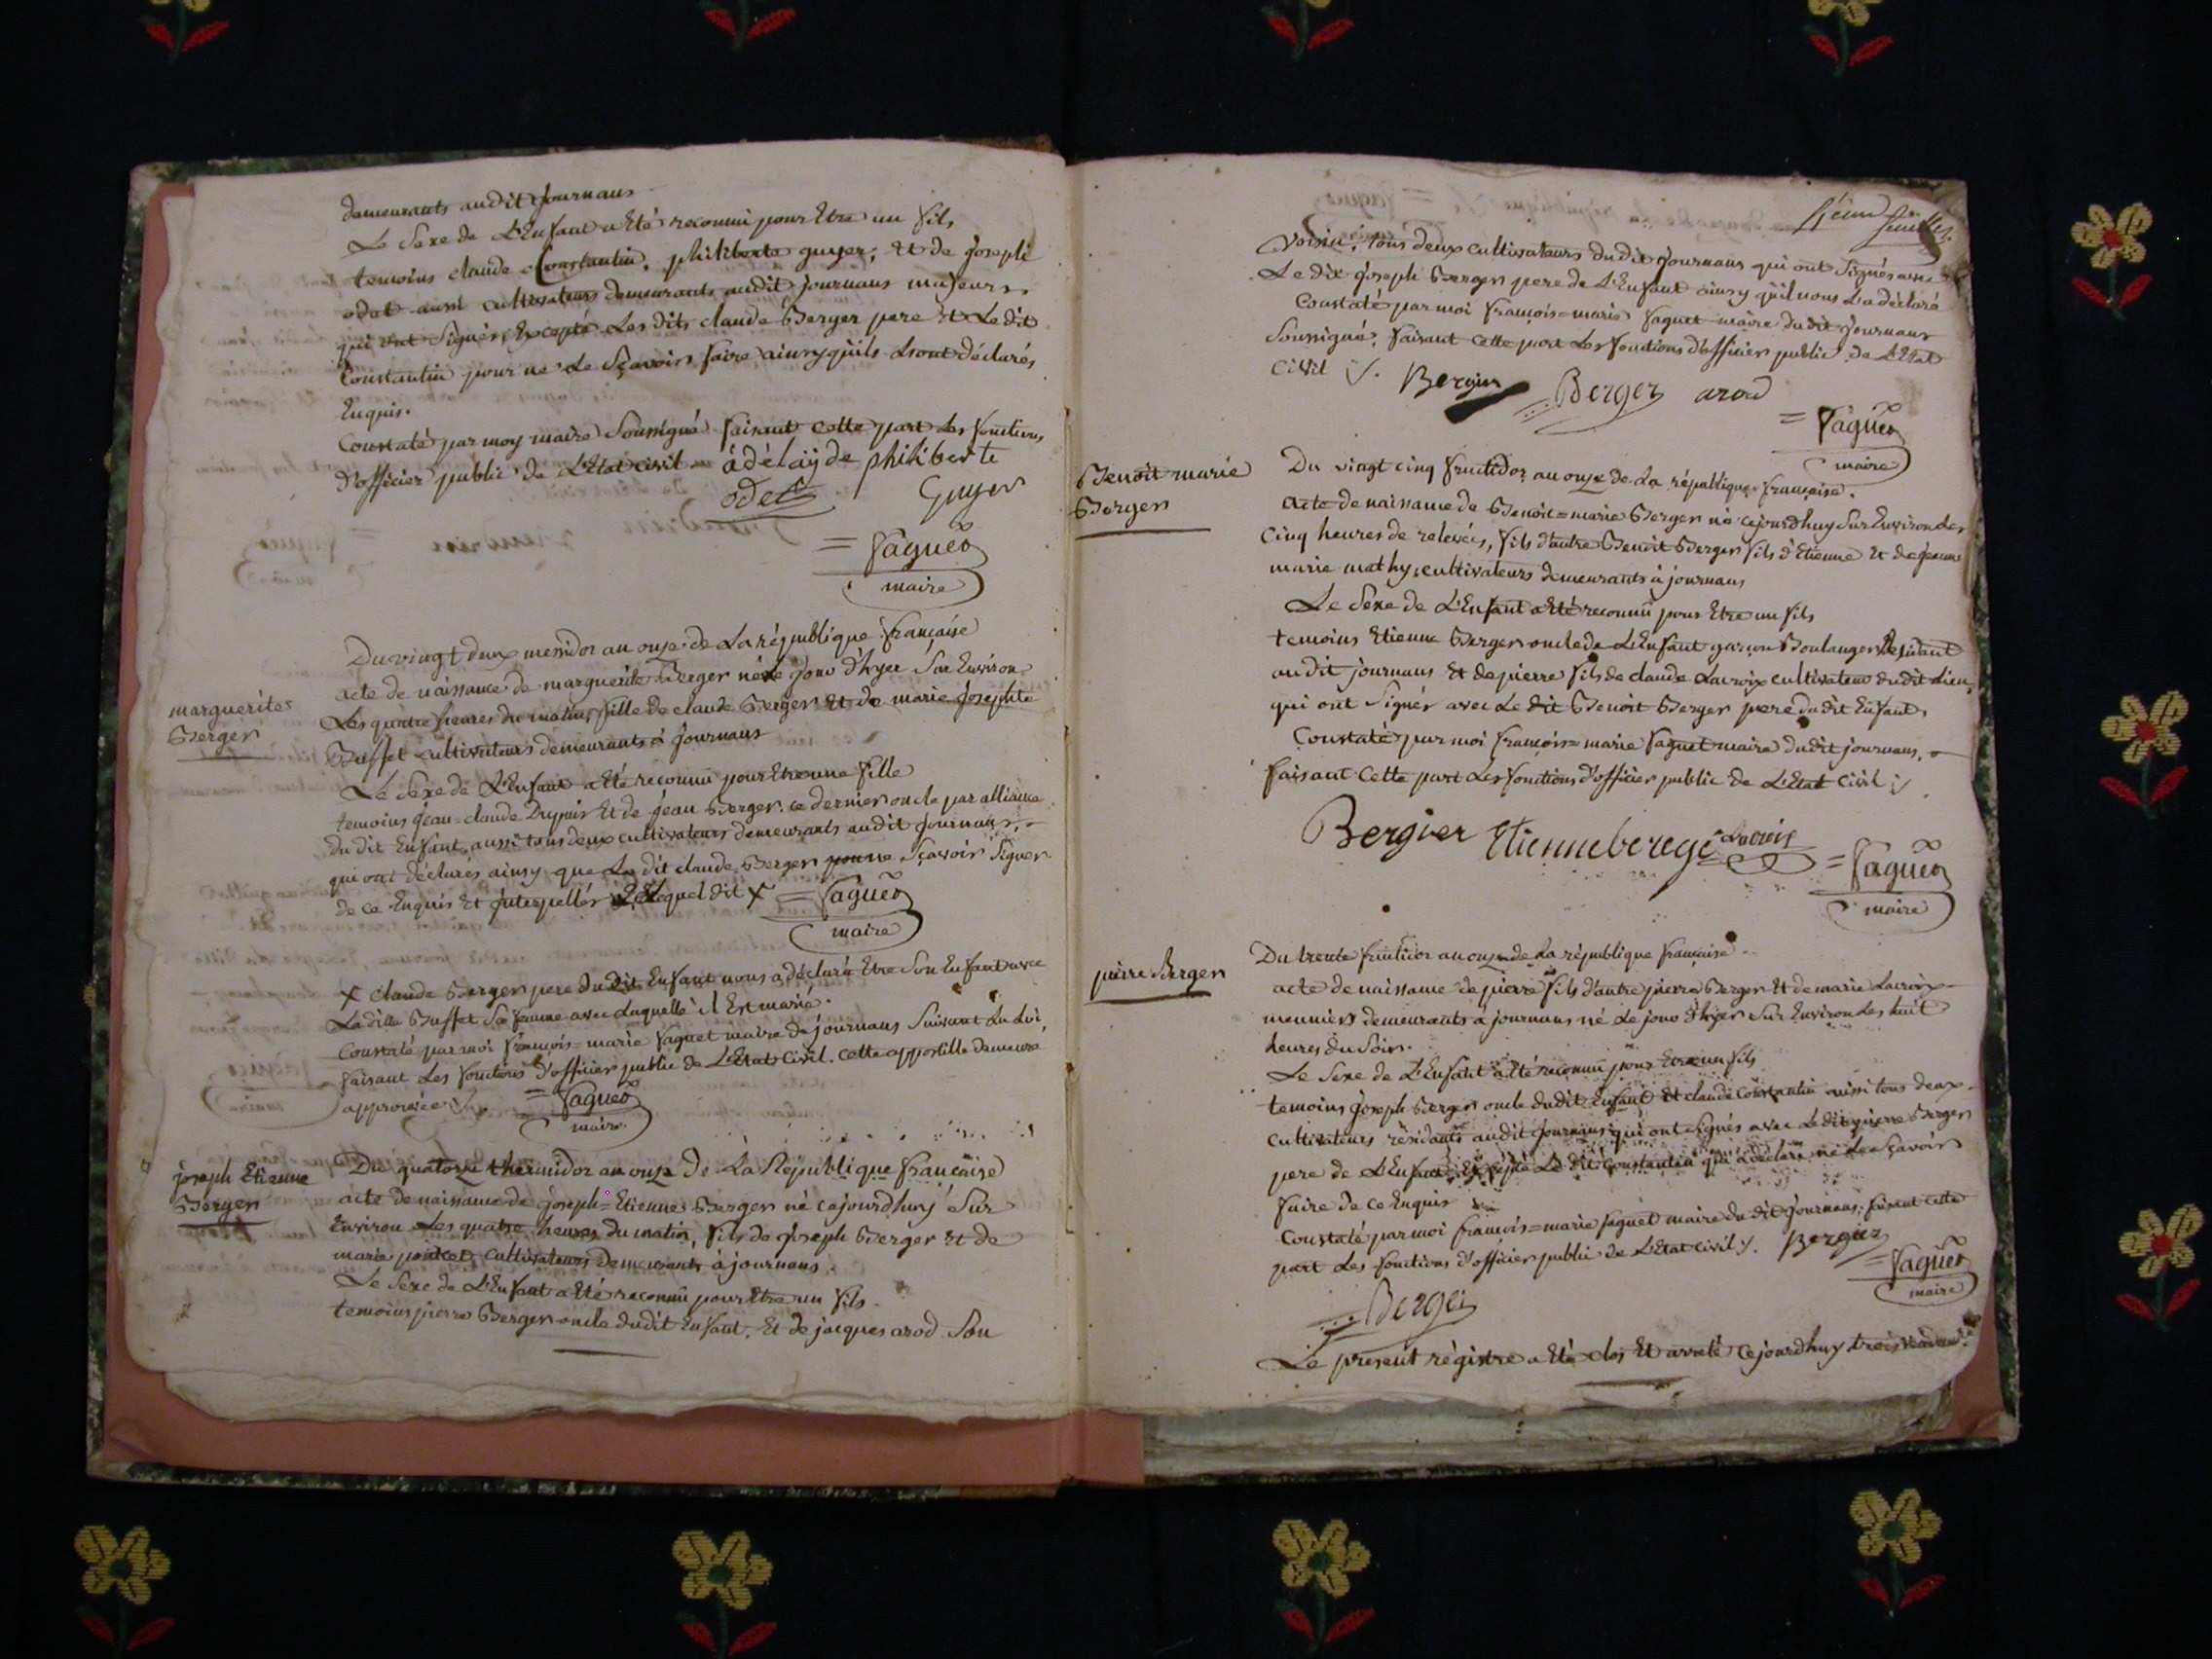 demeurants audit journans
Le Sexe de L'Enfant a Eté reconnu pour Etre un fils
temoins claude Constantin, philiberte guyer, Et de joseph
odet aussi cultivateurs demeurants audit journans majeurs
qui ont Signés, Excepté Les dits claude Berger pere Et Le dit
Constantin pour ne Le Sçavoir faire ainsy qu'ils Lont déclarés
Enquis.
Constaté par moy maire Soussigné faisant cette part Les fonctions
d'officier public de L'Etat civil
adélaÿde philiberte
odet
Guyer
= faguet
maire
Du vingt deux messidor an onze de La république française
marguerite
Berger
acte de naissance de marguerite Berger née Le jour d'hyer Sur Environ
Les quatre heures du matin, fille de claude Berger Et de marie josephte
Buffet cultivateurs demeurants à journans
Le Sexe de L'Enfant a Eté reconnu pour Etre une fille
temoins jean=claude Dupuis Et de jean Berger, ce dernier oncle par alliance
du dit Enfant, aussi tous deux cultivateurs demeurants audit journans,
qui ont déclarés ainsy que Le dit claude Berger pour ne Sçavoir Signer
de ce Enquis Et interpellés Lequel dit X = faguet
maire
X claude Berger pere du dit Enfant nous a déclaré Etre Son Enfant avec
La dite Buffet Sa femme avec Laquelle il Est marié.
Constaté par moi françois=marie faguet maire de journans Suivant La Loi,
faisant Les fonctions d'officier public de L'Etat Civil. cette appostille demeure
approuvée ./. = faguet
maire
joseph Etienne
Berger
Du quatorze thermidor an onze de La République française
acte de naissance de joseph=Etienne Berger né cejourdhuy Sur
Environ Les quatre heures du matin, fils de joseph Berger Et de
marie poncet, cultivateurs demeurants à journans.
Le Sexe de L'Enfant a Eté reconnu pour Etre un fils.
temoins pierre Berger oncle dudit Enfant, Et de jacques arod Son
feuillet
voisin, tous deux cultivateurs dudit journans qui ont Signés avec
Le dit joseph Berger pere de L'Enfant ainsy qu'il nous L'a déclaré
Constaté par moi françois=marie faguet maire du dit journans
Soussigné, faisant cette part Les fonctions d'officier public de L'Etat
Civil ./. Bergier Berger arod
= faguet
maire
Benoit marie
Berger
Du vingt cinq fructidor an onze de La république française.
acte de naissance de Benoit=marie Berger né cejourdhuy Sur Environ Les
Cinq heures de relevées, fils d'autre Benoit Berger fils d'Etienne Et de jeanne
marie mathy, cultivateurs demeurants à journans
Le Sexe de L'Enfant a Eté reconnu pour Etre un fils
temoins Etienne Berger oncle de L'Enfant garçon Boulanger Residant
audit journans Et de pierre fils de claude Lacroix cultivateur dudit Lieu,
qui ont Signés avec Le dit Benoit Berger pere du dit Enfant,
Constaté par moi françois=marie faguet maire dudit journans,
faisant cette part Les fonctions d'officier public de L'Etat civil ./.
Bergier Etienne berege Lacroix = faguet
maire
pierre Berger
Du trente fructidor an onze de La république française
acte de naissance de pierre fils d'autre pierre Berger Et de marie Lacroix
meuniers demeurants à journans né Le jour d'hyer Sur Environ Les huit
heures du Soir.
Le Sexe de L'Enfant a Eté reconnu pour Etre un fils
temoins joseph Berger oncle dudit Enfant Et claude Constantin aussi tous deux
cultivateurs résidants audit journans qui ont Signés avec Le dit pierre Berger
pere de L'Enfant Excepté Le dit Constantin qui a déclaré ne Le Sçavoir
faire de ce Enquis
Constaté par moi françois=marie faguet maire du dit journans, faisant cette
part Les fonctions d'officier public de L'Etat civil ./. Bergier
= faguet
maire
Berger
Le présent régistre a Eté clos Et arreté cejourdhuy trois vendem.